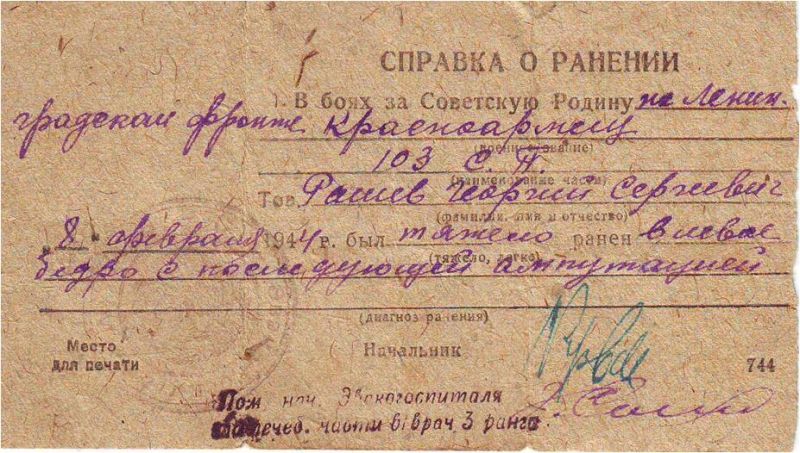 СПРАВКА О РАНЕНИИ
В боях за Советскую Родину на Ленин-
градском фронте красноармеец
(воен. звание)
103 С.П.
(наименование части)
Тов. Рашев Георгий Сергеевич
(фамилия, имя и отчество)
„8„ февраля 1944 г. был тяжело ранен в левое
(тяжело, легко)
бедро с последующей ампутацией
(диагноз ранения)
Место
для печати
Начальник
744
Пом нач Эвакогоспиталя
по лечеб. части в/врач 3 ранга